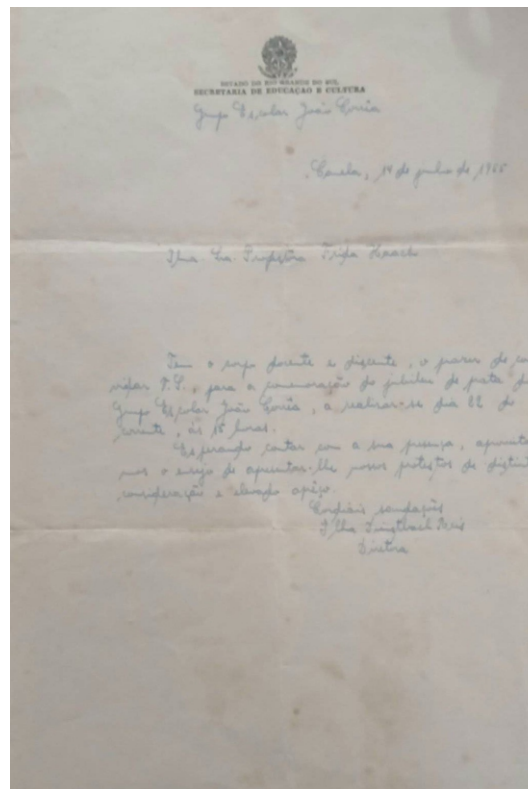 ESTADO DO RIO GRANDE DO SUL
SECRETARIA DE EDUCAÇÃO E CULTURA
Grupo Escolar João Corrêa
Canela, 14 de de 1955
Ilma. Sra. Professora Frida Haack
Tem o corpo docente e discente, o prazer de con
vidar V.S., para a comemoração do jubileu de prata do
Grupo Escolar João Corrêa, a realizar-se dia 22 do
corrente, às 15 horas.
Esperando contar com a sua presença, aproveita
mos o ensejo de apresentar-lhe nossos protestos de distinta
consideração e elevado apreço.
Cordiais saudações
Ilka Reis
Diretora